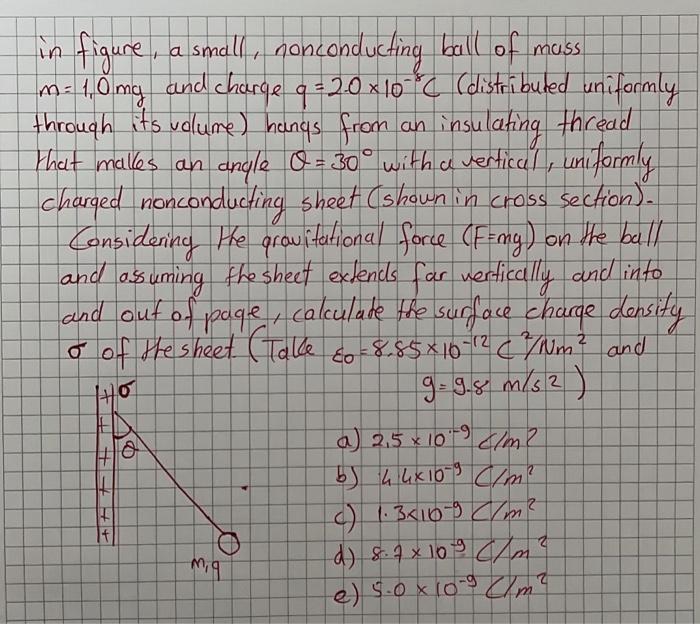 in figure, a small, nonconducting ball of mass
m = 1,0 mg and charge q = 2.0 × 10⁻⁸ C (distributed uniformly
through its volume) hangs from an insulating thread
that makes an angle θ = 30° with a vertical, uniformly
charged nonconducting sheet (shown in cross section).
Considering the gravitational force (F=mg) on the ball
and assuming the sheet extends far vertically and into
and out of page, calculate the surface charge density
σ of the sheet (Take ε₀ = 8.85 × 10⁻¹² C²/Nm² and
g = 9.8 m/s2)
+ σ
+
+ θ
+
+
+
m, q
a) 2,5 × 10⁻⁹ C/m²
b) 4.4×10⁻⁹ C/m²
c) 1.3×10⁻⁹ C/m²
d) 8.7 × 10⁻⁹ C/m²
e) 5.0 × 10⁻⁹ C/m²